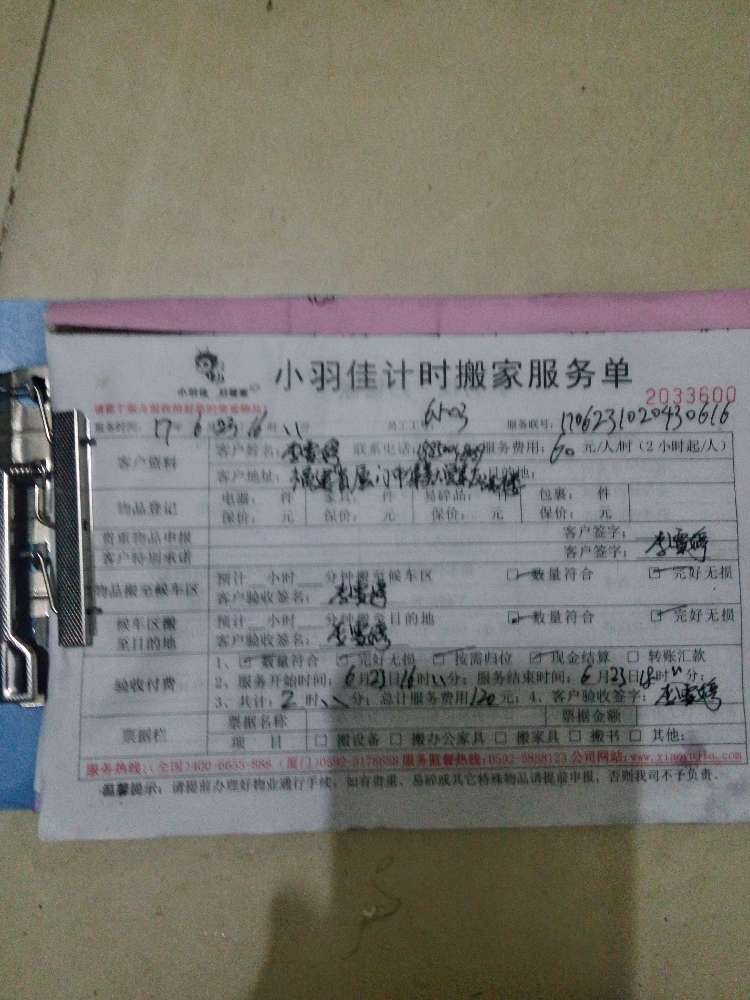 小羽佳计时搬家服务单
2033600
服务时间: 17年6月23日16时 分 员工工号 服务联号: 170623102043 0616
客户资料 客户姓名: 联系电话: 服务费用: 60元/人/时(2小时起/人)
客户地址: 福建省厦门市 目的地:
物品登记 电器: 件 家具: 件 易碎品: 件 包裹: 件
保价: 元 保价: 元 保价: 元 保价: 元
贵重物品申报 客户签字:
客户特别承诺 客户签字:
物品搬至候车区 预计__小时__分钟搬至候车区 数量符合 完好无损
客户验收签名:
候车区搬至目的地 预计__小时__分钟搬至目的地 数量符合 完好无损
客户验收签名:
验收付费 1、数量符合 完好无损 按需归位 现金结算 转账汇款
2、服务开始时间: 6月23日16时 分; 服务结束时间: 6月23日18时 分;
3、共计: 2时 分; 总计服务费用120元; 4、客户验收签字:
票据栏 票据名称 票据金额
项目 搬设备 搬办公家具 搬家具 搬书 其他:
服务热线:(全国)400-6655-888 (厦门)0592-3178658 服务监督热线:0592-5888123 公司网站:www.xiaoyujia.com
温馨提示: 请提前办理好物业通行手续, 如有贵重、易碎或其它特殊物品请提前申报, 否则我司不予负责。